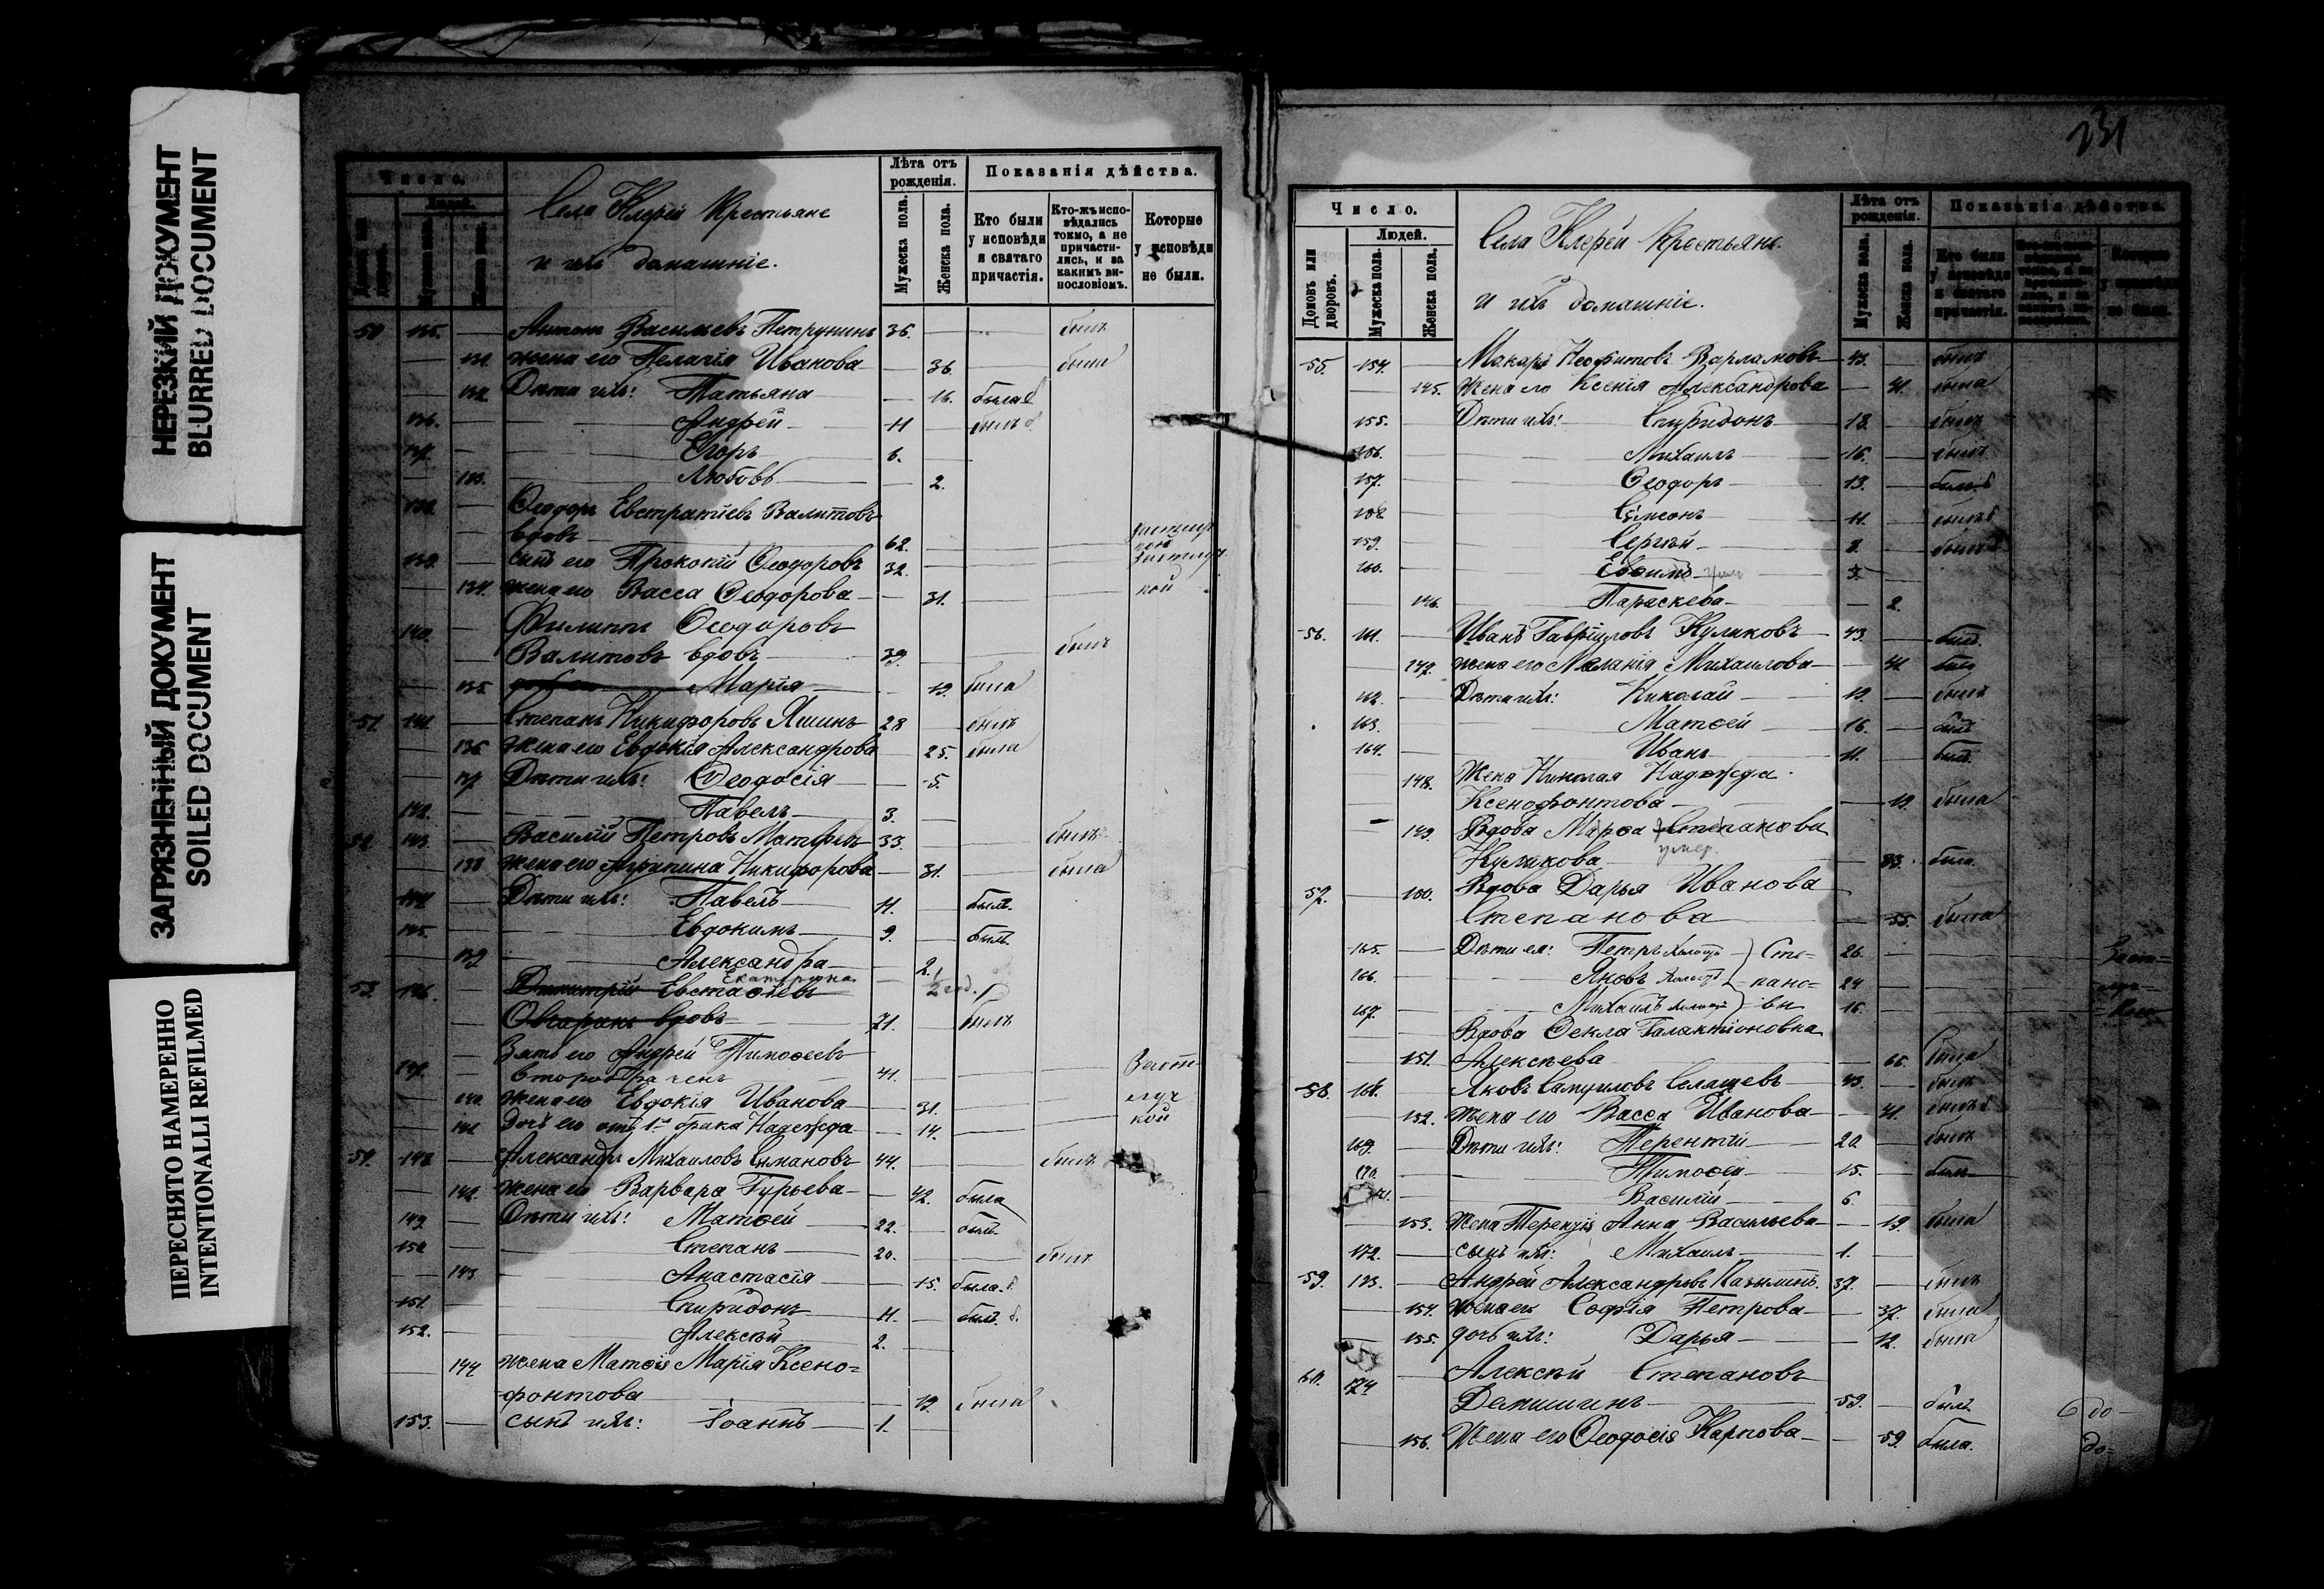 НЕРЕЗКИЙ ДОКУМЕНТ
BLURRED DOCUMENT
ЗАГРЯЗНЕННЫЙ ДОКУМЕНТ
SOILED DOCUMENT
ПЕРЕСНЯТО НАМЕРЕННО
INTENTIONALLI REFILMED
Число.
Людей.
Села Клерей Крестьяне
и ихъ домашніе.
Лѣта отъ рожденія.
Мужеска пола.
Женска пола.
Показанія дѣйства.
Кто были у исповѣди и святаго причастія.
Кто-жъ исповѣдались токмо, а не причастились, и за какимъ винословіемъ.
Которые у исповѣди не были.
50 135. Антонъ Васильевъ Петрунинъ 36. былъ
131. жена его Пелагія Иванова 36. была
132. Дѣти ихъ: Татьяна 16. была
136. Андрей 11 былъ
137. Егоръ 6.
133. Любовь 2.
138. Ѳеодоръ Евстратіевъ Валитовъ
вдовъ 62.
139. сынъ его Прокопій Ѳеодоровъ 32.
134. жена его Васса Ѳеодорова 31.
140. Филиппъ Ѳеодоровъ
Валитовъ вдовъ 39. былъ
135. Марія 19. была
51. 141. Степанъ Никифоровъ Яшинъ 28 былъ
136 жена его Евдокія Александрова 25. была
137. Дѣти ихъ: Ѳеодосія 5.
142. Павелъ 3.
52. 143. Василій Петровъ 33. былъ
138 жена его Агрипина Никифорова 31. была
144 Дѣти ихъ: Павелъ 11. былъ
145. Евдокимъ 9. былъ
139 Александра 2.
Екатерина
53. 146. Димитрій Евстаѳіевъ
Овчаракъ вдовъ 71. былъ
147. Зять его Андрей Тимоѳеевъ
второбраченъ 41.
140. жена его Евдокія Иванова 31.
141 дочь его отъ 1го брака Надежда 14.
54. 148 Александръ Михаиловъ Симановъ 44. былъ
142. жена его Варвара Гурьева 42. была
149. Дѣти ихъ: Матѳей 22. былъ
150 Степанъ 20. былъ
143. Анастасія 15. была
151. Спиридонъ 11. былъ
152. Алексѣй 2.
144 жена Матѳія Марія Ксено=
фонтова 19. была
153. сынъ ихъ: Іоаннъ 1.
231
Число.
Домовъ или дворовъ.
Людей.
Мужеска пола.
Женска пола.
Села Клерей Крестьяне
и ихъ домашніе.
Лѣта отъ рожденія.
Мужеска пола.
Женска пола.
Показанія дѣйства.
Кто были у исповѣди и святаго причастія.
55. 154. Макарій Неофитовъ Варламовъ 43. былъ
145. жена его Ксенія Александрова 41. была
155. Дѣти ихъ: Спиридонъ 18. былъ
156. Михаилъ 16. былъ
157. Ѳеодоръ 13. былъ
158 Сѵмеонъ 11. былъ
159. Сергѣй былъ
160. Евѳимъ
146. Параскева 2.
56. 161. Иванъ Гавріиловъ Куликовъ 43. былъ
147. жена его Меланія Михаилова 41. была
162. Дѣти ихъ: Николай 19. былъ
163. Матѳей 16. былъ
164. Иванъ 11. былъ
148. Жена Николая Надежда
Ксенофонтова 19. была
149 Вдова Марѳа Степанова
умер.
Куликова 83. была
57. 150. Вдова Дарья Иванова
Степанова 55. была
165. Дѣти ея: Петръ холостъ Сте= 26.
166. Яковъ холостъ пано= 24
167. Михаилъ холостъ вы 16.
Вдова Ѳекла Галактіоновна
151. Алексѣева 66. была
58. 168. Яковъ Самуиловъ 43. былъ
152. жена его Васса Иванова 41. была
169. Дѣти ихъ: Терентій 20 былъ
170. Тимоѳей 15. былъ
171. Василій 6
153. жена Терентія Анна Васильева 19. была
172. сынъ ихъ: Михаилъ 1.
59. 173. Андрей Александровъ 37. былъ
154. жена его Софія Петрова 37. была
155. дочь ихъ: Дарья 12. была
60. 174 Алексѣй Степановъ
Демшинъ 59. былъ
156. Жена его Ѳеодосія Карпова 59. была.